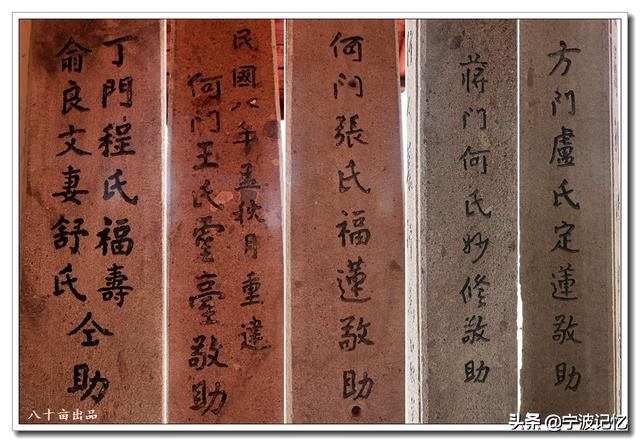 方门盧氏定蓮敬助
蔣门何氏妙修敬助
何门張氏福蓮敬助
民國八年孟秋月重建
何门王氏臺敬助
丁門程氏福壽
俞良文妻舒氏
仝助
八十亩出品
头条 @宁波记忆